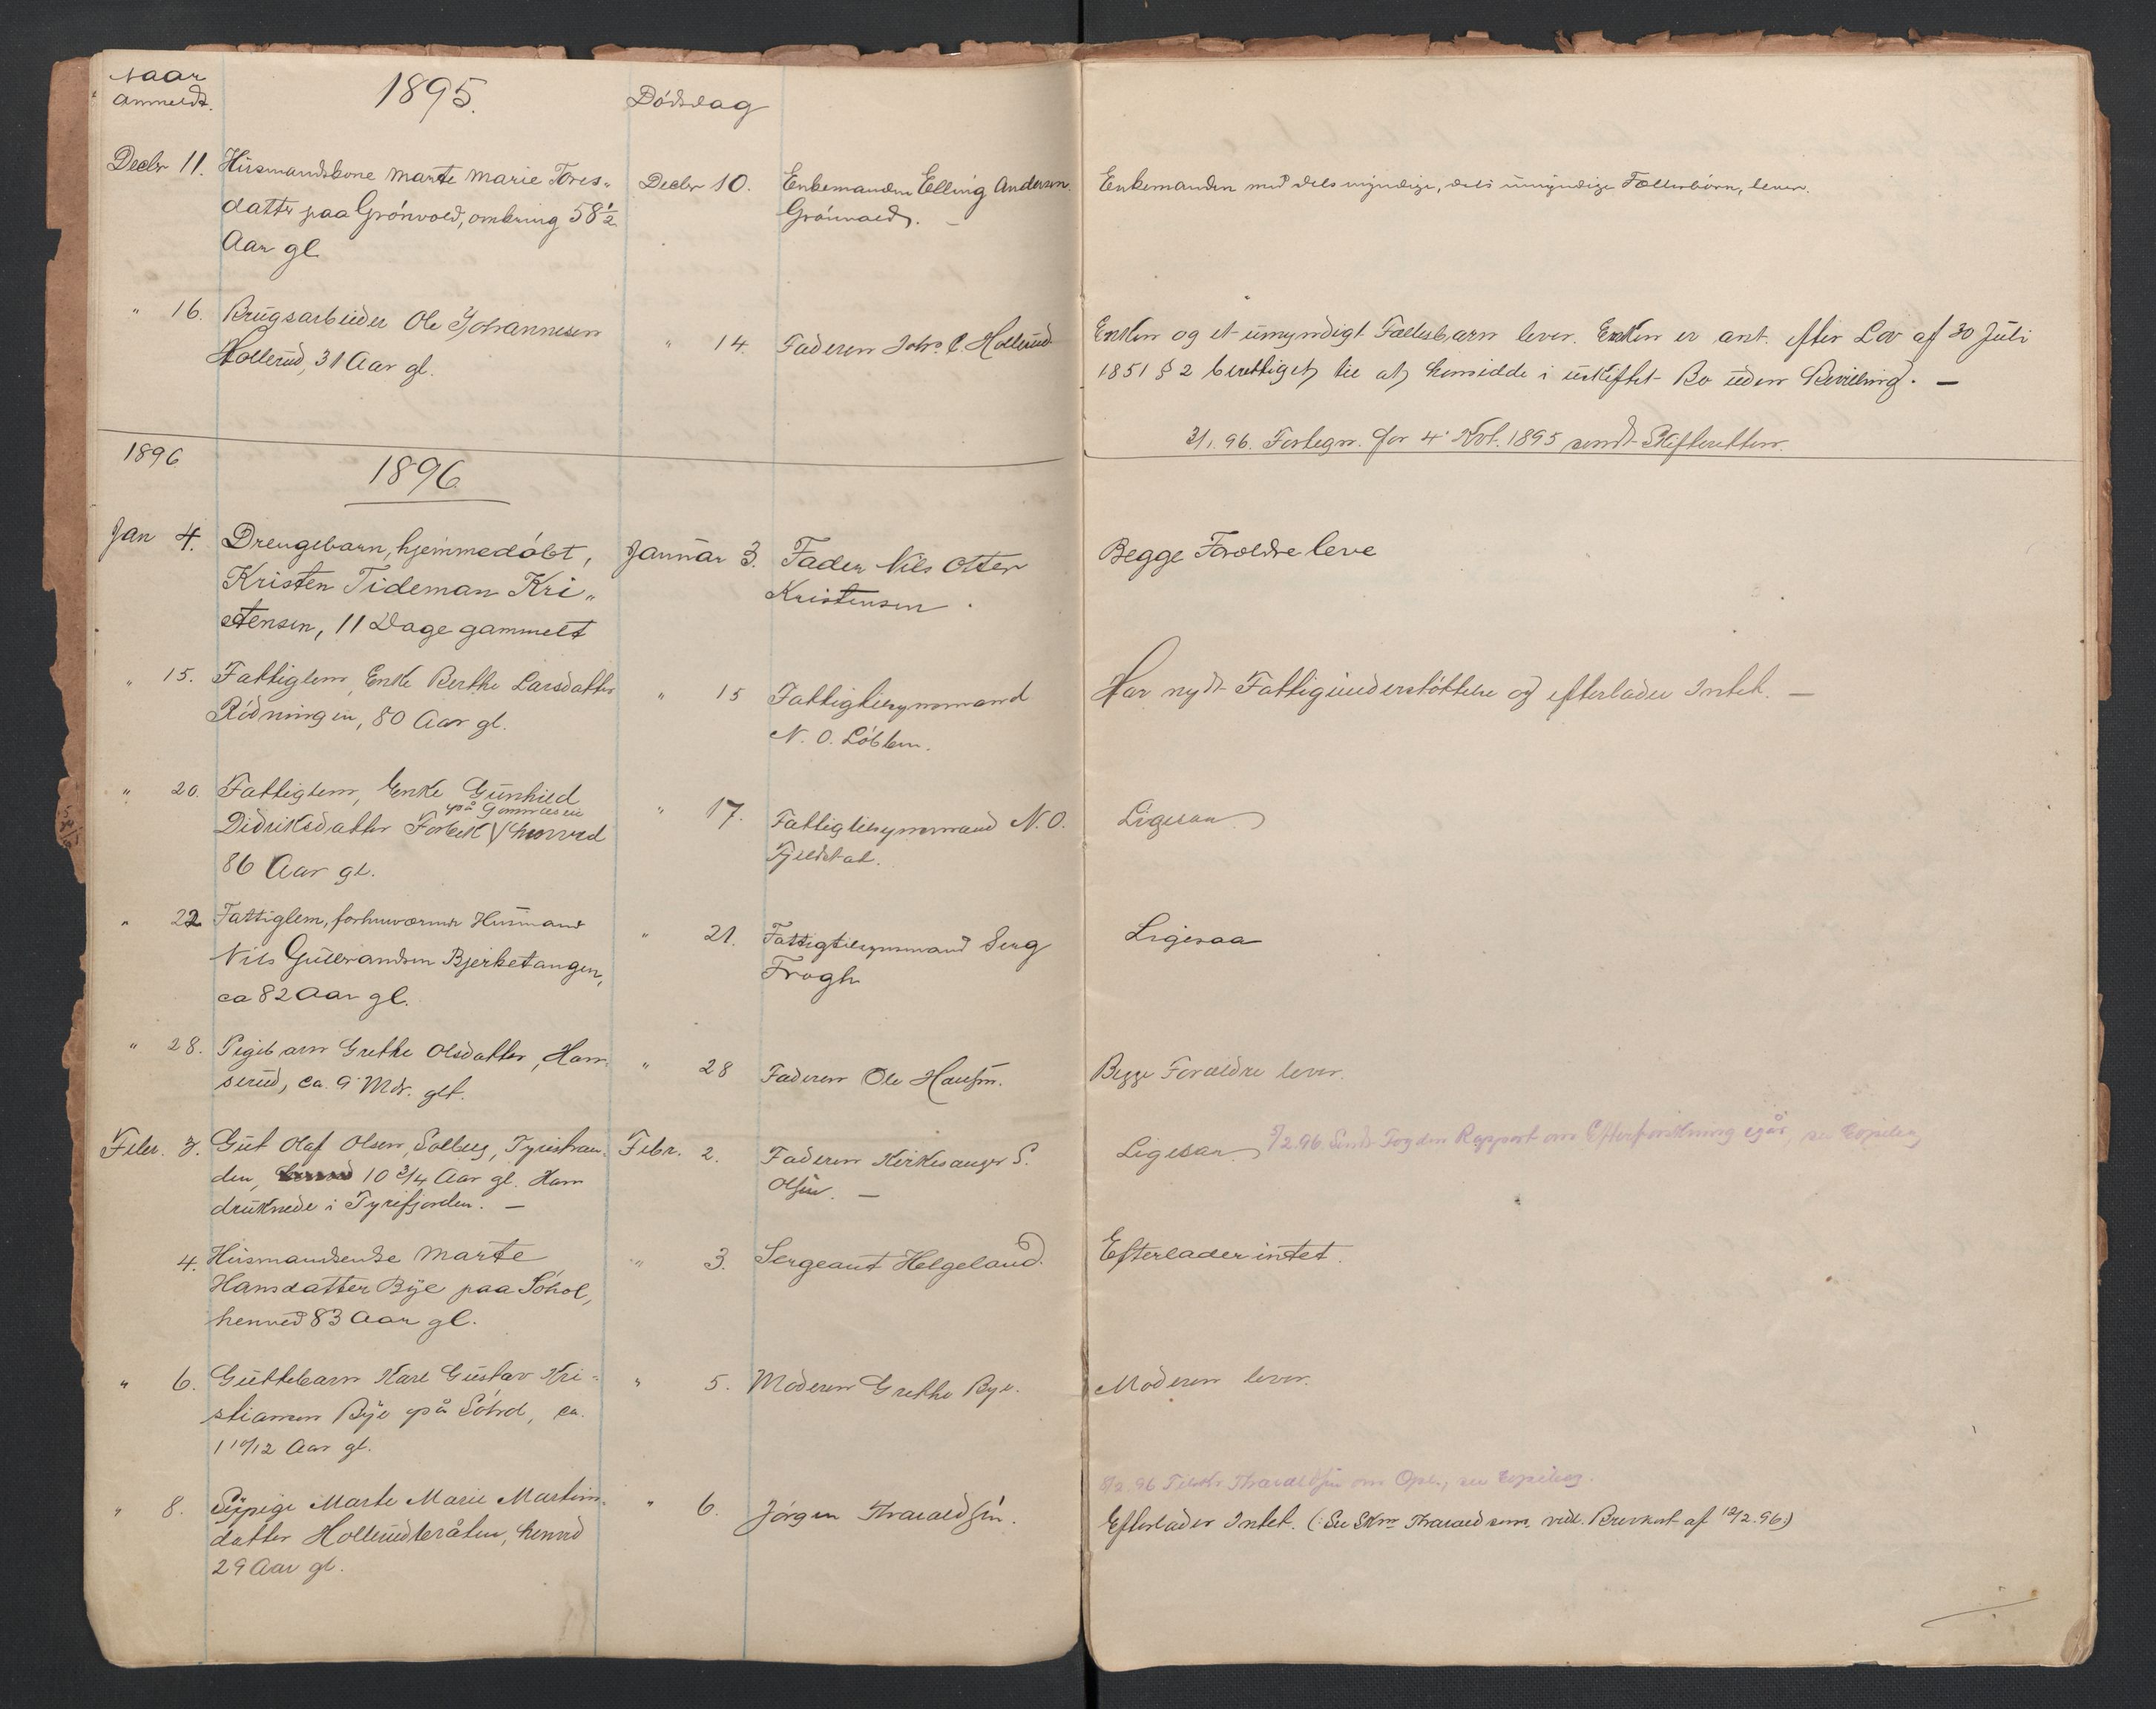 Naar
anmeldt.
1895.
Dödsdag
Decbr 11.
Húsmandskone Marte Marie Tores„
datter paa Grönvold, omkring 58 1/2
Aar gl
Decbr 10.
Enkemanden Elling Andersen
Grönvold. –
Enkemanden med dels myndige, dels úmyndige Fællesbörn, lever.
" 16.
Brúgsarbeider Ole Johannesen
Hollerúd, 31 Aar gl.
" 14.
Faderen Johs. Hollerúd
Enken og et úmyndigt Fællesbarn lever. Enken er ant. efter Lov af 30 Júli
1851 § 2 berettiget til at hensidde i úskiftet Bo úden Bevilling. –
3/1. 96. Fortegn. for 4' Kvt. 1895 sendt Skifteretten.
1896
1896
Jan 4.
Drengebarn, hjemmedöbt,
Kristen Tideman Kri„
stensen, 11 Dage gammelt
Janúar 3.
Fader Nils Otter
Kristensen.
Begge Forældre leve
" 15.
Fattiglem, Enke Berthe Larsdatter
Rödningen, 80 Aar gl.
" 15
Fattigtilsynsmand
N. O. Löbben.
Har nydt Fattigúnderstöttelse og efterlader Intet. –
" 20.
Fattiglem, Enke Gúnhild
på
Didriksdatter henved
86 Aar gl.
" 17.
Fattigtilsynsmand N. O.
Fjeldstad.
Ligesaa
" 22
Fattiglem, forhenværende Húsmand
Nils Gúlbrandsen Bjerketangen,
ca 82 Aar gl.
" 21.
Fattigtilsynsmand Serg
Frogh
Ligesaa
" 28.
Pigebarn Grethe Olsdatter, Ham„
serúd, ca. 9 Mdr. glt.
" 28
Faderen Ole Hansen.
Begge Forældre lever.
Febr. 3.
Gút Olaf Olsen, Solberg, Tyristran„
den, 10 3/4 Aar gl. Han
drúknede i Tyrifjorden. –
Febr. 2.
Faderen Kirkesanger S.
Olsen. –
Ligesaa
5/2.96 Sendt Fogden Rapport om Efterforskning igår, se Copibog
4.
Húsmandsenke Marte
Hansdatter Bÿe paa Söhol,
henved 83 Aar gl.
" 3.
Sergeant Helgeland.
Efterlader intet.
" 6.
Gúttebarn Karl Gústav Kri„
stiansen Bÿe på Söhol, ca.
1 10/12 Aar gl.
" 5.
Moderen Grethe Bye.
Moderen lever.
" 8.
Sÿpige Marte Marie Martins„
datter Hollerúdbråten, henved
29 Aar gl.
" 6.
Jörgen Tharaldsen.
8/2.96 Tilskr. Tharaldsen om Opl., se Copibog.
Efterlader Intet. (: Se Skr. Tharaldsens vedl. Brevkort af 12/2.96:)